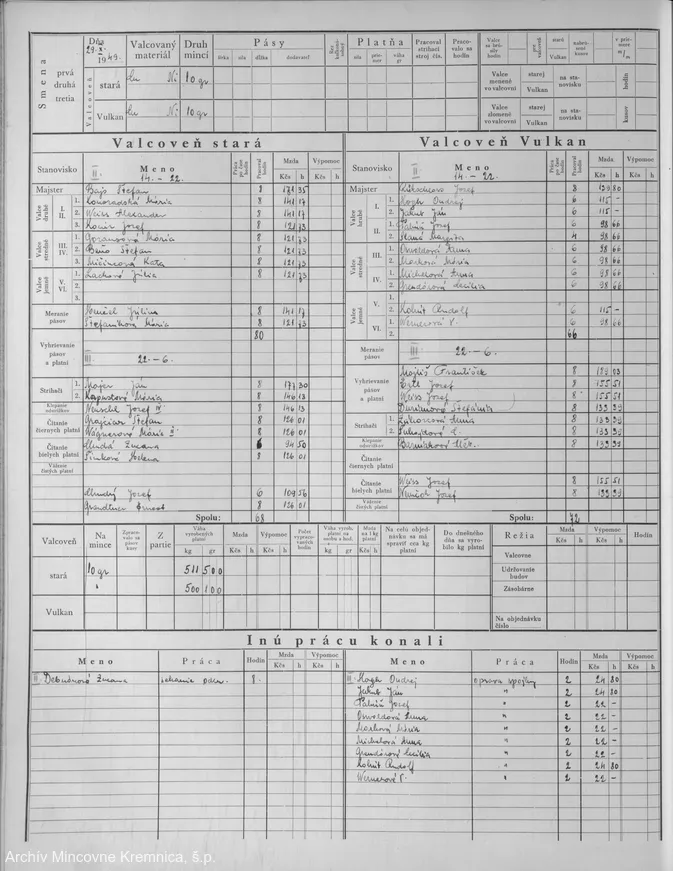 Smena
prvá
druhá
tretia
Dňa
29.X.
1949.
Valcoveň
Valcovaný materiál
Druh mincí
Pásy
šírka
sila
dĺžka
dodávateľ
Platňa
Pracoval strihací stroj čís.
Pracovalo sa hodín
stará
Cu Ni
10 gr
Vulkan
Cu Ni
10 gr
Valce menené vo valcovni
starej
Vulkan
na stanovisku
hodín
Valce zlomené vo valcovni
starej
Vulkan
na stanovisku
kusov
Valcoveň stará
Valcoveň Vulkan
Stanovisko
Meno
II. 14.-22.
Práca po čase hodín
Pracoval hodín
Mzda
Výpomoc
Kčs h Kčs h
Stanovisko
Meno
II. 14.-22.
Mzda
Výpomoc
Kčs h Kčs h
Majster Bajo Štefan 8 171 35
Valce hrubé I. II. 1. Konoradská Mária 8 141 17
2. Weiss Alexander 8 141 17
3. Kocúr Jozef 8 121 73
Valce stredné III. IV. 1. Mária 8 121 73
2. Baňo Štefan 8 121 73
3. Mičincová Kata 8 121 73
Valce jemné V. VI. 1. Lachová Júlia 8 121 73
2.
3.
Meranie pásov Július 8 141 17
Štefaniková Mária 8 121 73
80
Vyhrievanie pásov a platní
III. 22.-6.
Strihači 1. Majer Ján 8 177 30
2. Kapustová Mária 8 146 13
Klepanie odstrižkov Jozef IV 8 146 13
Čítanie čiernych platní Grajciar Štefan 8 126 01
Wágnerová Mária II. 8 126 01
Čítanie bielych platní Mudrá Zuzana 6 94 50
Finková Helena 8 126 01
Váženie čistých platní
Mudrý Jozef 6 109 56
Grandtner Ernest 8 126 01
Spolu: 68
Majster Jozef 8 159 80
Valce hrubé I. 1. Hogh Ondrej 6 115 -
2. Jakub Ján 6 115 -
II. 1. Paľniš Jozef 6 98 66
2. Margita 4 98 66
Valce stredné III. 1. Osvaldová Anna 6 98 66
2. Marková Mária 6 98 66
IV. 1. Michelová Anna 6 98 66
2. Grandörová Cecília 6 98 66
Valce jemné V. 1.
2. Kohút Rudolf 6 115 -
VI. 1. Wernerová V. 6 98 66
2. 66
Meranie pásov
III. 22.-6.
Vyhrievanie pásov a platní
František 8 189 03
Ertl Jozef 8 155 51
Weiss Jozef 8 155 51
Štefánia 8 133 39
Strihači 1. Anna 8 133 39
2. 8 133 39
Klepanie odstrižkov 8 133 39
Čítanie čiernych platní
Čítanie bielych platní Weiss Jozef 8 155 51
Jozef 8 133 39
Váženie čistých platní
Spolu: 72
Valcoveň
Na mince
Zpracovalo sa pásov kusy
Z partie
Váha vyrobených platní
kg gr
Mzda
Výpomoc
Kčs h Kčs h
Počet vypracovaných hodín
Váha vyrob. platní na osobu a hod.
kg gr
Mzda na 1 kg platní
Kčs h
Na celú objednávku sa má spraviť cca kg platní
Do dnešného dňa sa vyrobilo kg platní
Réžia
Mzda
Výpomoc
Kčs h Kčs h
Hodín
stará 10 gr 511 500
" 500 100
Vulkan
Valcovne
Udržovanie budov
Zásobárne
Na objednávku číslo
Inú prácu konali
Meno
Práca
Hodín
Mzda
Výpomoc
Kčs h Kčs h
Meno
Práca
Hodín
Mzda
Výpomoc
Kčs h Kčs h
II. Debnárová Zuzana sekanie odst. 8.
II. Hogh Ondrej oprava spojky 2 24 80
Jakub Ján " 2 24 80
Paľniš Jozef " 2 22 -
Osvaldová Anna " 2 22 -
Marková Mária " 2 22 -
Michelová Anna " 2 22 -
Grandörová Cecília " 2 22 -
Kohút Rudolf " 2 24 80
Wernerová V. " 2 22 -
Archív Mincovne Kremnica, š.p.